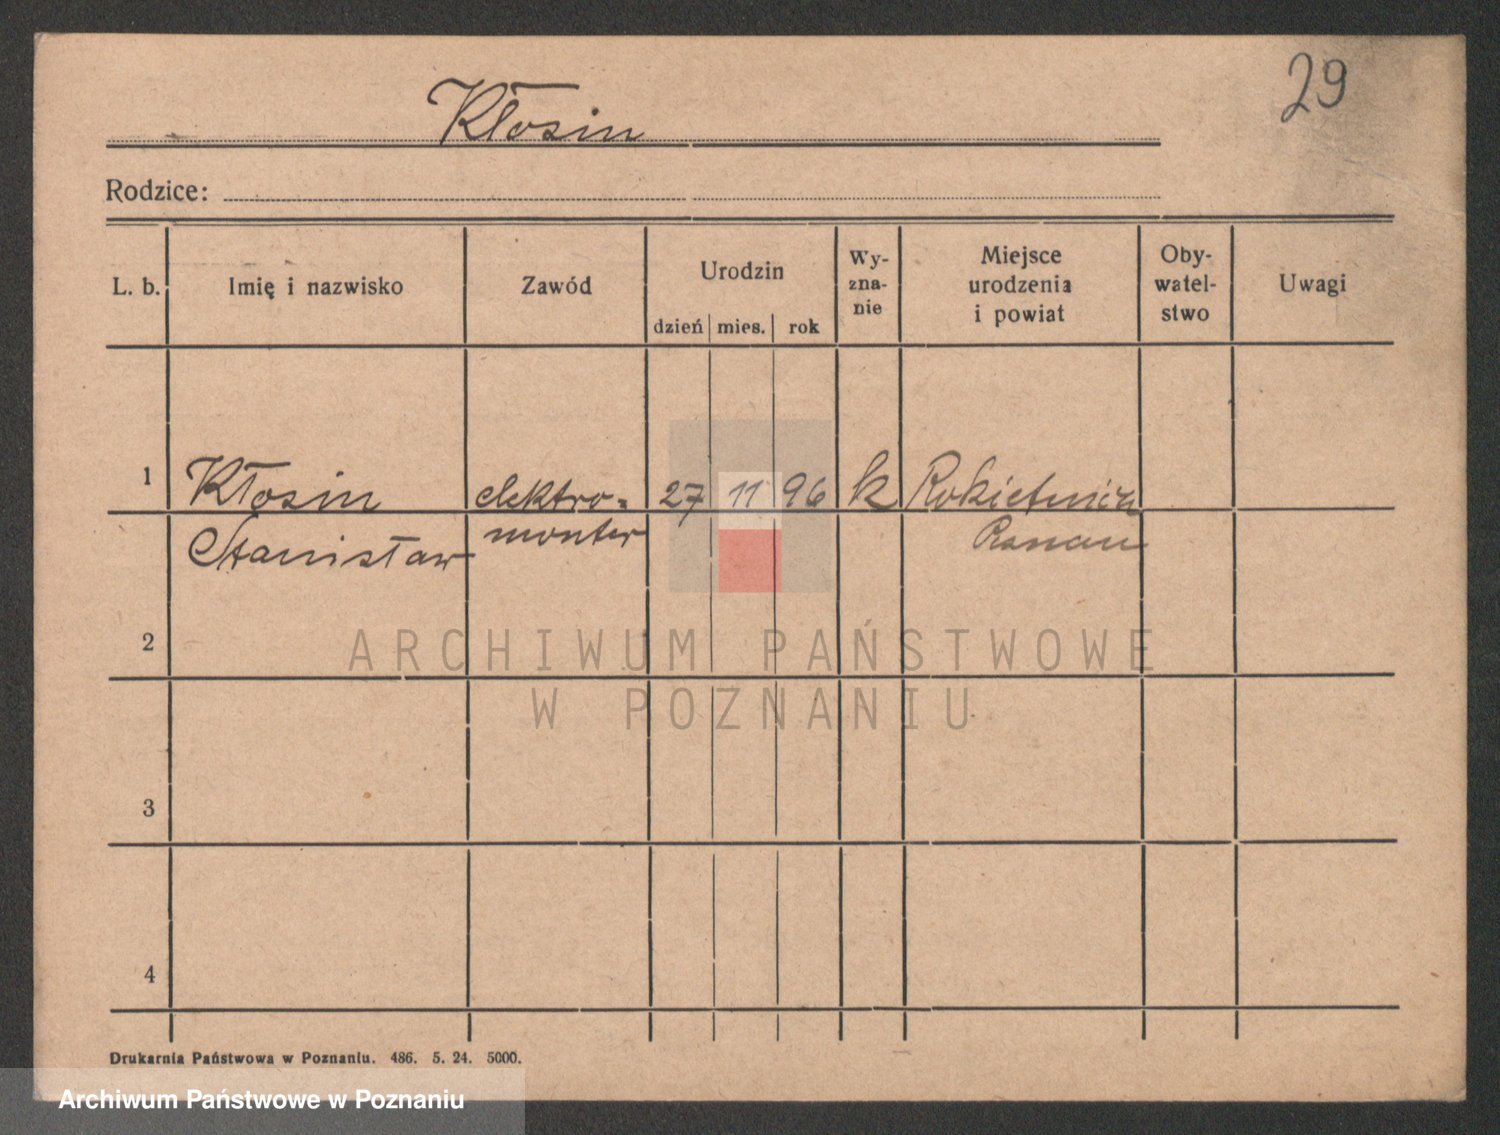 29
Kłosin
Rodzice:
L. b.
Imię i nazwisko
Zawód
Urodzin
dzień mies. rok
Wy-
zna-
nie
Miejsce
urodzenia
i powiat
Oby-
watel-
stwo
Uwagi
1 Kłosin elektro- 27 11 96 k Rokietnica
Stanisław monter
2
3
4
ARCHIWUM PAŃSTWOWE
W POZNANIU
Drukarnia Państwowa w Poznaniu. 486. 5. 24. 5000.
Archiwum Państwowe w Poznaniu